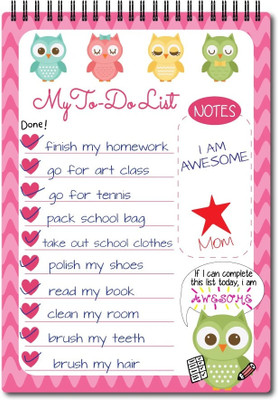 My To-Do List
Done!
finish my homework
go for art class
go for tennis
pack school bag
take out school clothes
polish my shoes
read my book
clean my room
brush my teeth
brush my hair
NOTES
I AM
AWESOME
MOM
If I can complete
this list today, i am
AWESOME